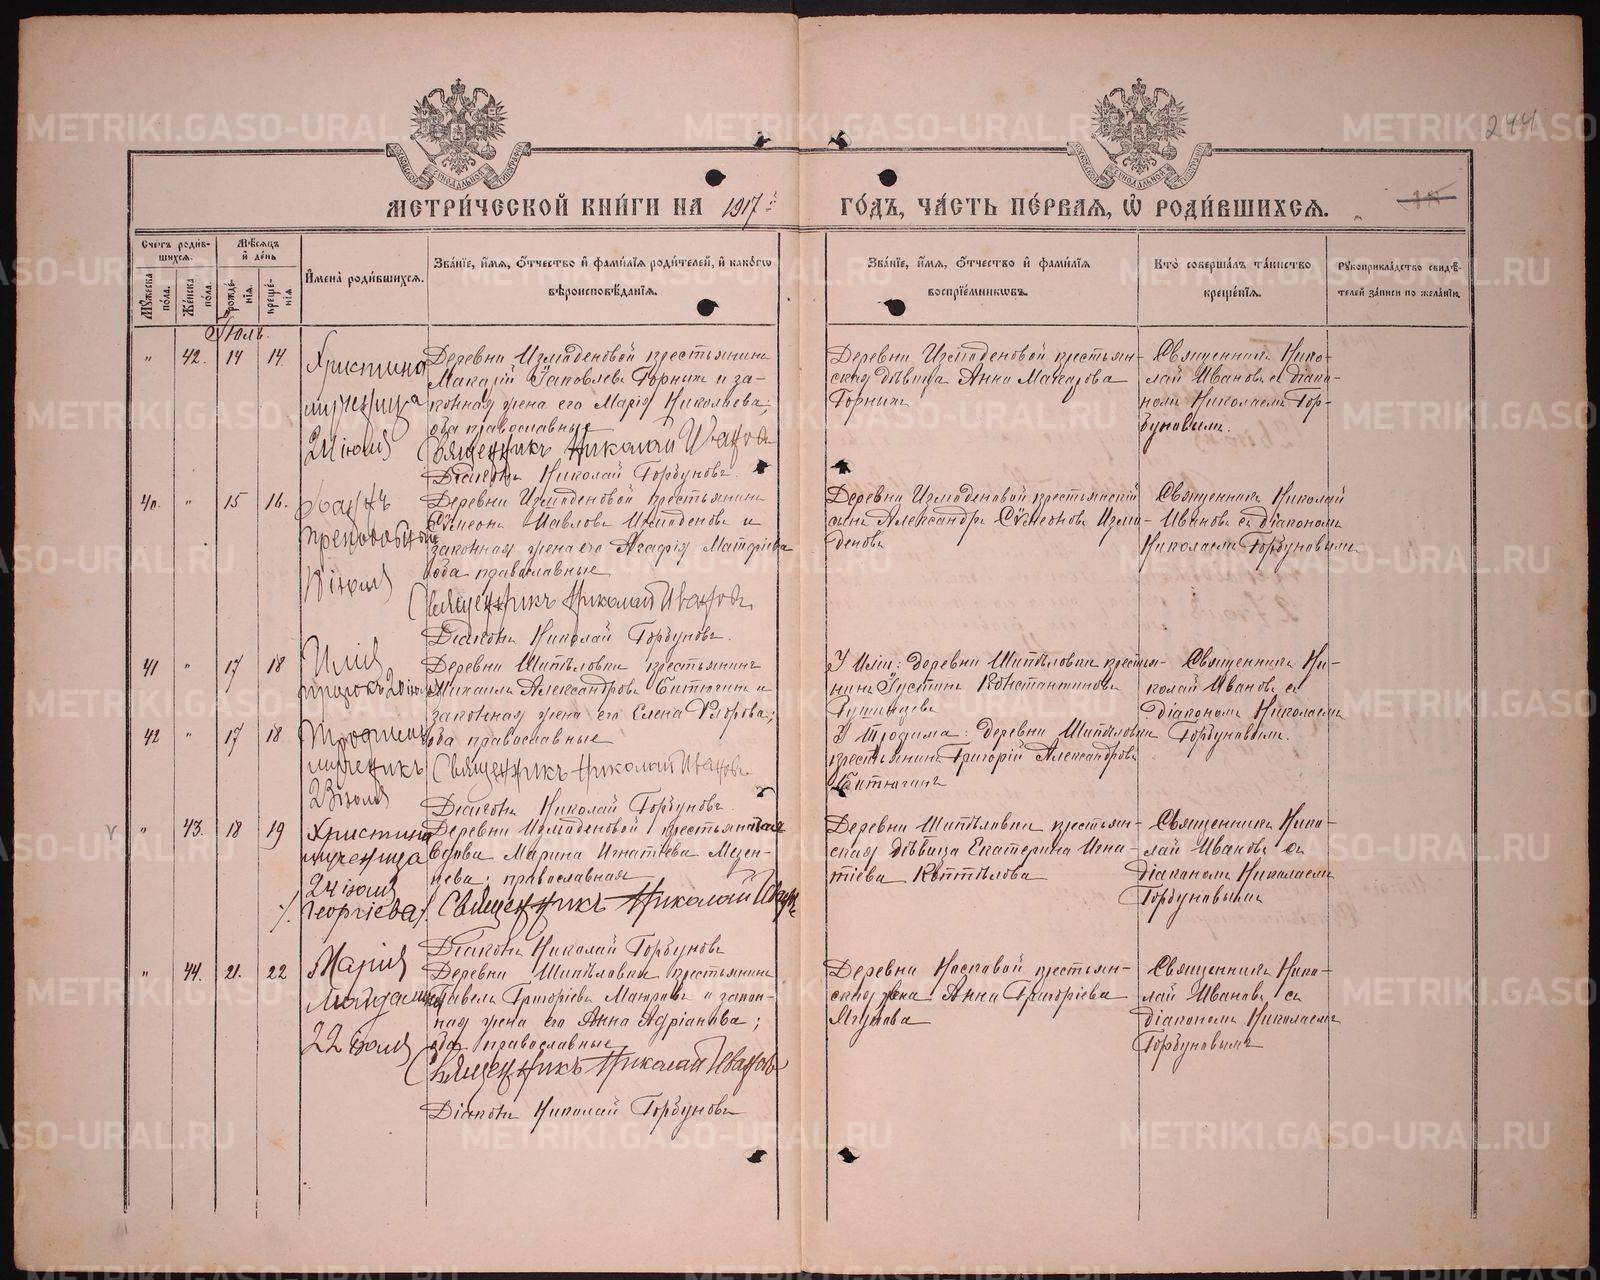 МЕТРИЧЕСКОЙ КНИГИ НА 1917й ГОДЪ, ЧАСТЬ ПЕРВАЯ, Ѡ РОДИВШИХСЯ.
244
Счетъ родив-
шихся.
Мѣсяцъ
и день
Мужеска
пола.
Женска
пола.
рожде-
нія.
креще-
нія
Имена родившихся.
Званіе, имя, отчество и фамилія родителей, и какогѡ
вѣроисповѣданія.
Званіе, имя, отчество и фамилія
воспріемникѡвъ.
Кто совершалъ таинство
крещенія.
Рукоприкладство свидѣ-
телей записи по желанію.
Іюль.
" 42. 14 14.
Христина
мученица
24 іюля
Деревни Измоденовой крестьянинъ
Макарій Іаковлевъ Горныхъ и за-
конная жена его Марія Николаева,
оба православные
Священникъ Николай Ивановъ
Діаконъ Николай Горбуновъ.
Деревни Измоденовой крестьян-
ская дѣвица Анна Макарова
Горныхъ
Священникъ Нико-
лай Ивановъ съ діако-
номъ Николаемъ Гор-
буновымъ.
40. " 15 16.
преподобный
іюля
Деревни Измоденовой крестьянинъ
Сѵмеонъ Павловъ Измоденовъ и
законная жена его Агафія
оба православные
Священникъ Николай Ивановъ
Діаконъ Николай Горбуновъ.
Деревни Измоденовой крестьянскій
сынъ Александръ Сѵмеоновъ Измо-
деновъ
Священникъ Николай
Ивановъ съ діакономъ
Николаемъ Горбуновымъ
41 " 17 18
Илія
пророкъ 20 іюля
Деревни Шипѣловки крестьянинъ
Михаилъ Александровъ Битюгинъ и
законная жена его Елена
У Иліи: деревни Шипѣловки крестья-
нинъ Іустинъ Константиновъ
Священникъ Ни-
колай Ивановъ съ
діакономъ Николаемъ
Горбуновымъ.
42 " 17 18
Трофимъ
мученикъ
23 іюля
оба православные
Священникъ Николай Ивановъ
Діаконъ Николай Горбуновъ.
У Трофима: деревни Шипѣловки
крестьянинъ Григорій Александровъ
Битюгинъ
" 43. 18 19
Христина
мученица
24 іюля
Георгіева
Деревни Измоденовой крестьянская
вдова Марина Игнатіева Мезен-
цева; православная
Священникъ Николай Ивановъ
Діаконъ Николай Горбуновъ
Деревни Шипѣловки крестьян-
ская дѣвица Екатерина Игна-
тіева
Священникъ Нико-
лай Ивановъ съ
діакономъ Николаемъ
Горбуновымъ
" 44. 21. 22
Марія
22 іюля
Деревни Шипѣловки крестьянинъ
Павелъ Григоріевъ и закон-
ная жена его Анна Адріанова;
оба православные
Священникъ Николай Ивановъ
Діаконъ Николай Горбуновъ
Деревни крестьян-
ская жена Анна Григоріева
Священникъ Нико-
лай Ивановъ съ
діакономъ Николаемъ
Горбуновымъ
METRIKI.GASO-URAL.RU